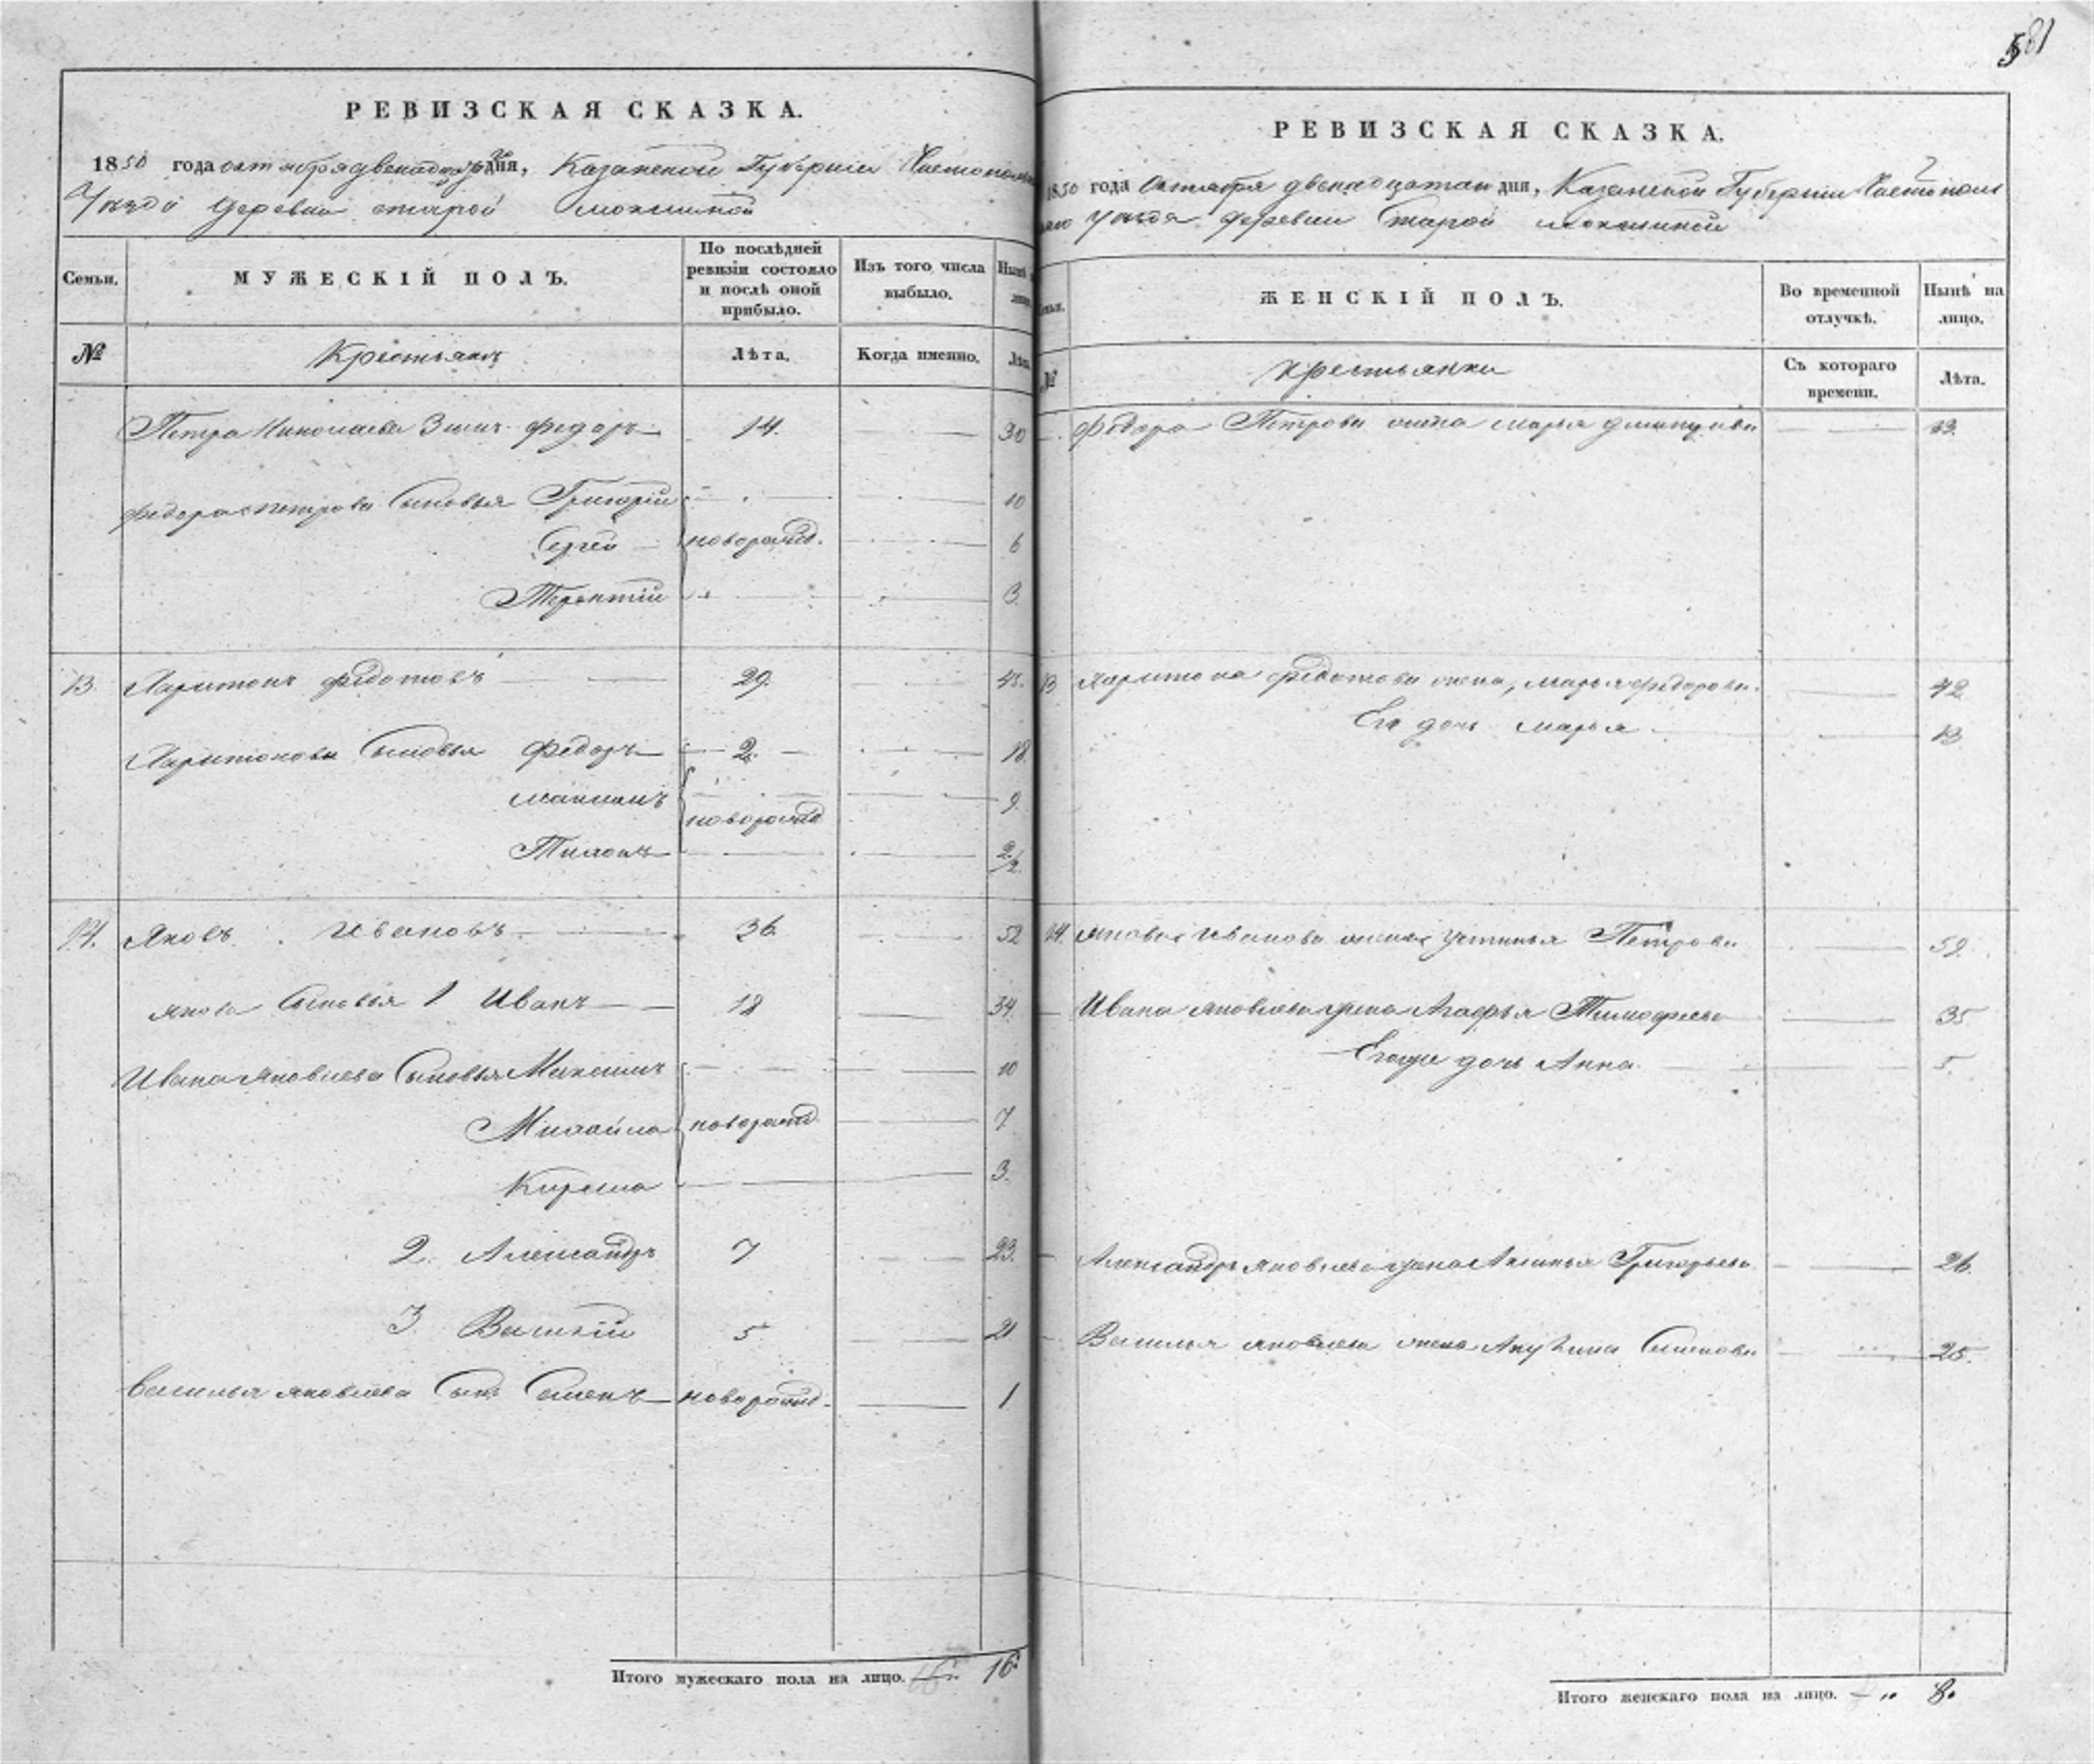 581
РЕВИЗСКАЯ СКАЗКА.
1850 года октября двенадцаго дня, Казанской Губерніи Чистополь
Уѣзда деревни старой мокшиной
Семьи. МУЖЕСКІЙ ПОЛЪ. По послѣдней ревизіи состояло и послѣ оной прибыло. Изъ того числа выбыло. Нынѣ
№ Крестьянъ Лѣта. Когда именно. Лѣта
Петра Николаева 3 сынъ Федоръ 14. 30
Федора Петрова Сыновья Григорій 10
Сергей новорожд. 6
Терентій 3.
13. Харитонъ федотовъ 29. 45.
Харитонова Сыновья Федоръ 2. 18.
максимъ новорожд 9.
Тихонъ 2/2.
14. Яковъ Ивановъ 36. 52
якова Сыновья 1 Иванъ 18 34.
Ивана яковлева Сыновья Максимъ 10
Михайла новорожд 7
Кирела 3.
2. Александръ 7 23.
3. Василій 5. 21
Василья яковлева Сынъ Семенъ новорожд. 1
Итого мужескаго пола на лицо. 16
РЕВИЗСКАЯ СКАЗКА.
1850 года Октября двенадцатаго дня, Казанской Губерніи Чистополь
Уѣзда деревни Старой мокшиной
ЖЕНСКІЙ ПОЛЪ. Во временной отлучкѣ. Нынѣ на лицо.
№ крестьянки Съ котораго времени. Лѣта.
Федора Петрова жена марья 33.
13 Харитона федотова жена, марья федорова. 42.
Его дочь марья 13
14. якова Иванова жена Устинья Петрова 59.
Ивана яковлева жена Агафья Тимофеева 35
Егоже дочь Анна 5.
Александра яковлева жена Аксинья Григорьева 26.
Василья яковлева жена Акулина Семенова 25.
Итого женскаго пола на лицо. 8.